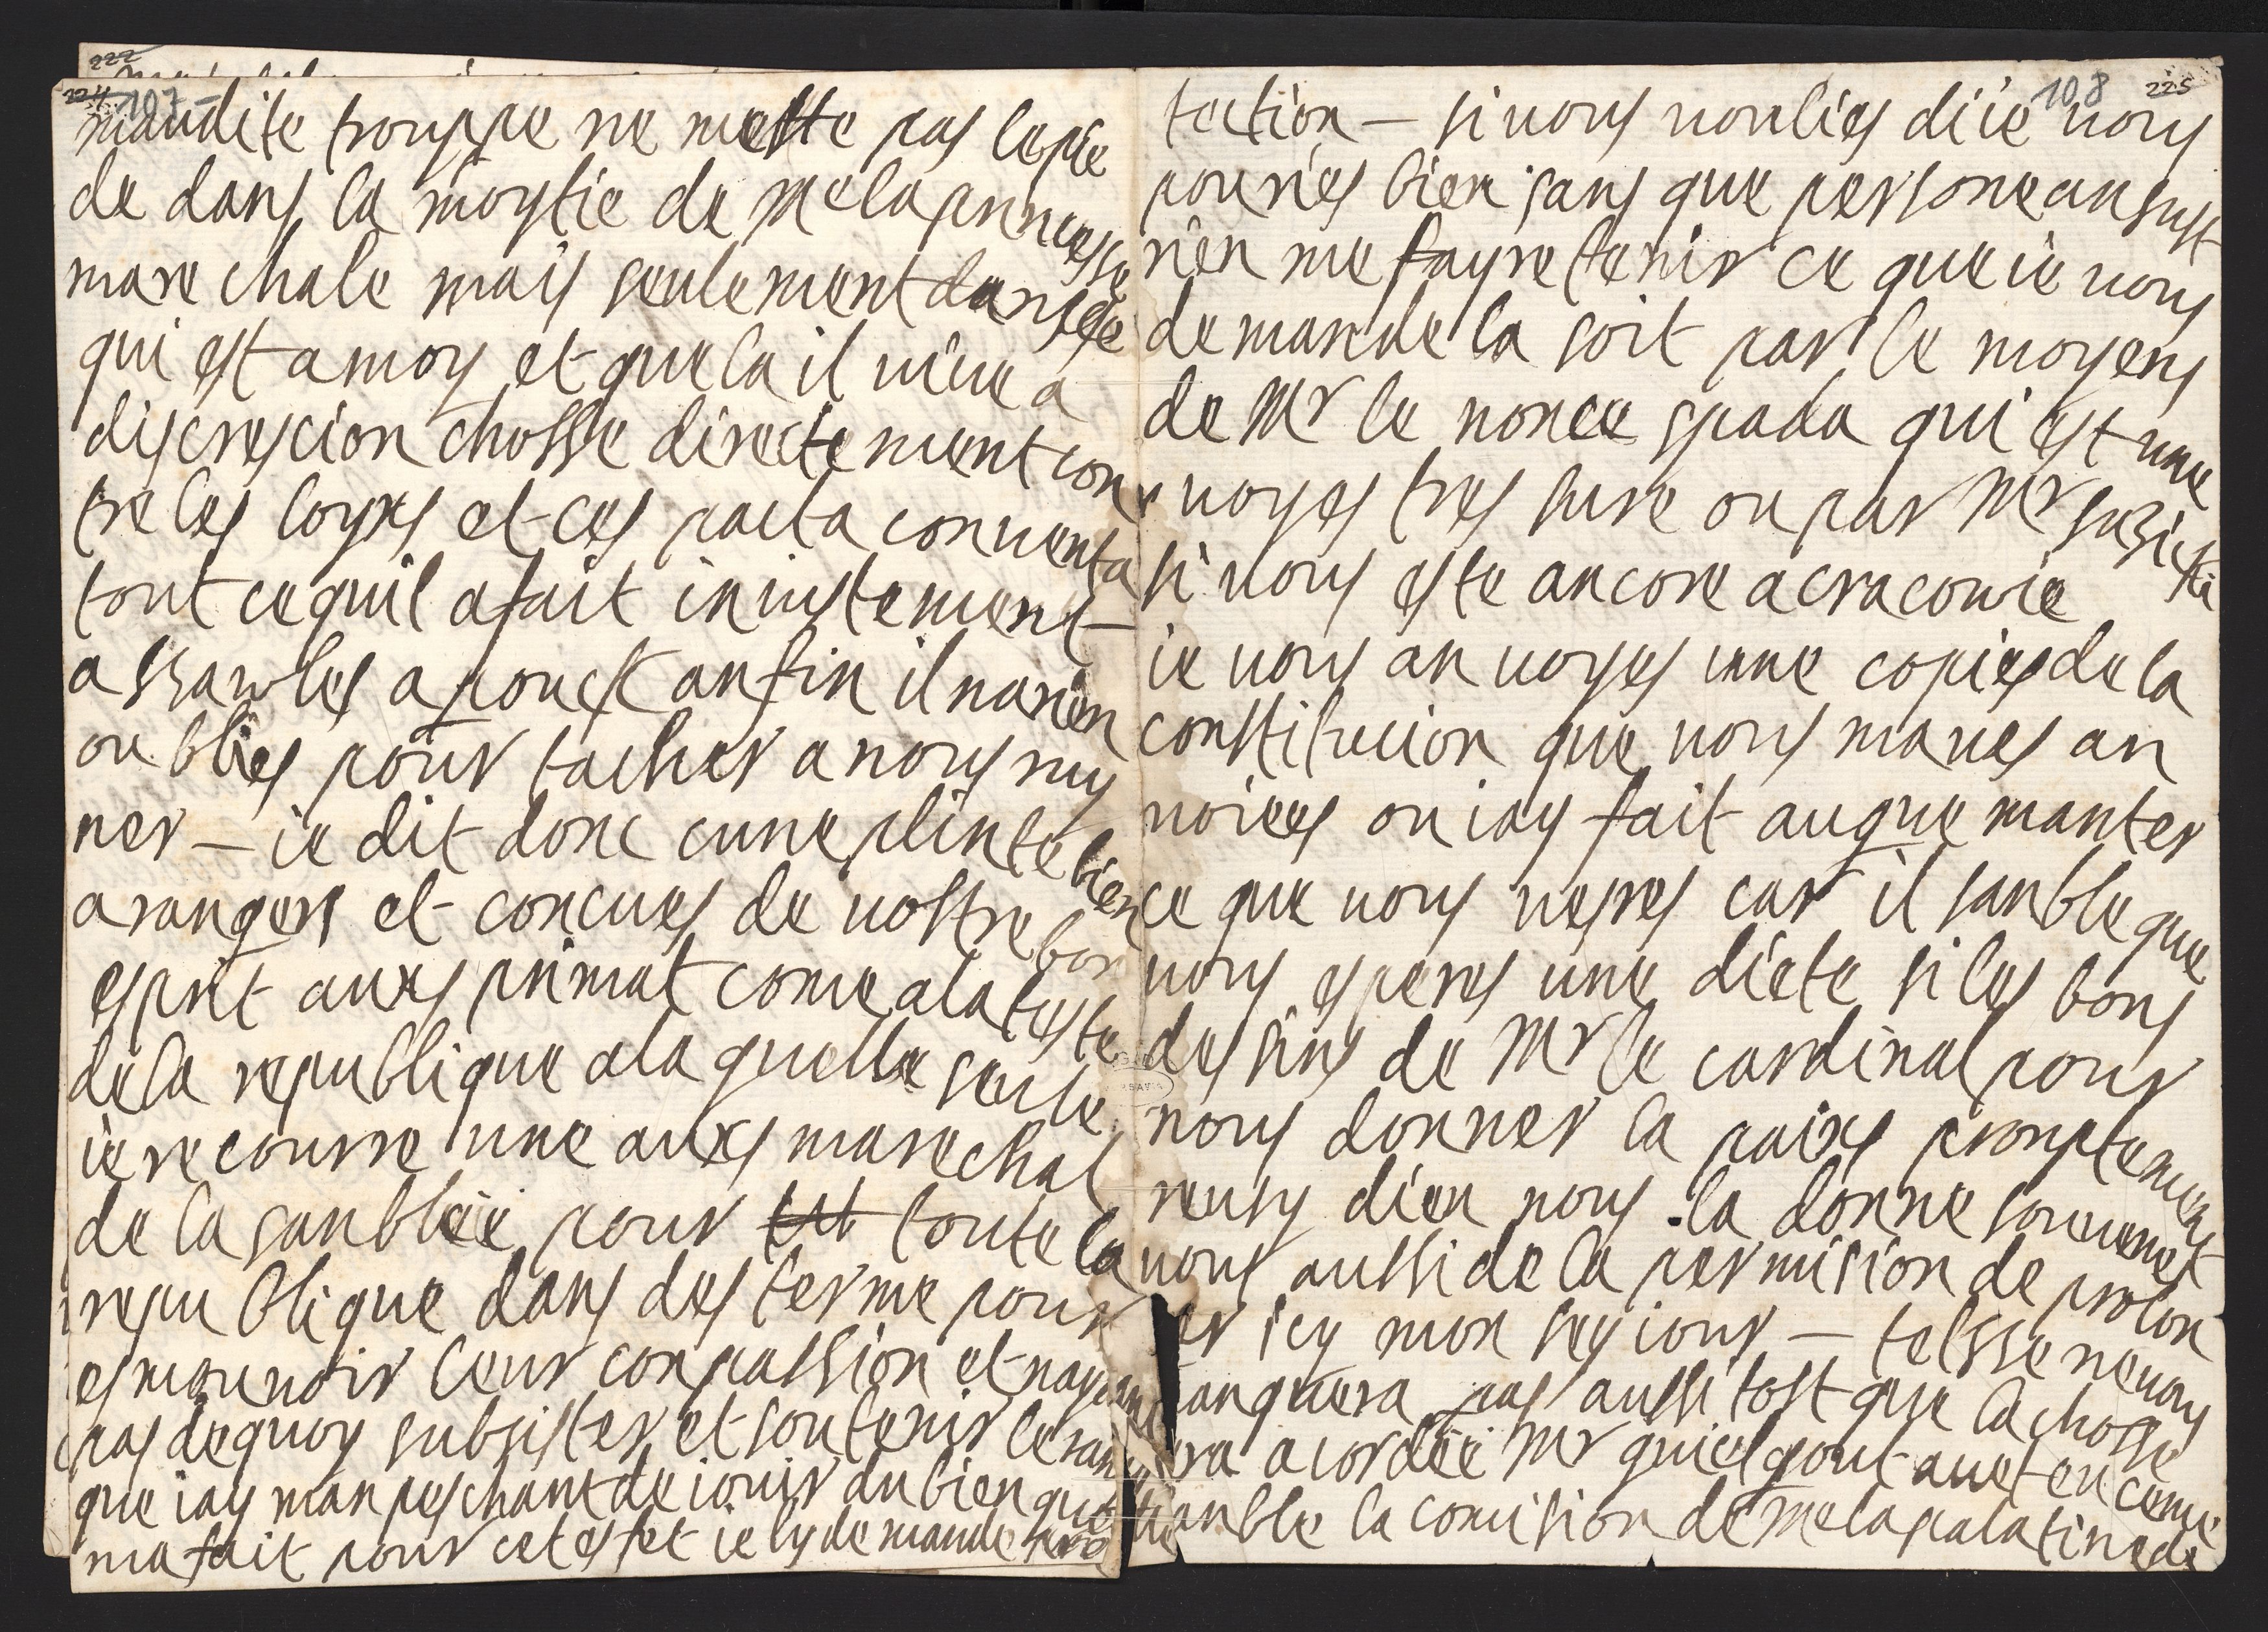 222
224 107 -
maudite trouppe ne mette pas le pie
de dans la moytie de Me la prinncesse
mare chale mais seulement dans se
qui est a moy et que la il vive a
discrescion chosse directement con
tre les loyxs et ces pacta conventa
tout ce quil a fait iniustement
a Shawles a pouck anfin il na rien
ou blies pour tacher a nous ruy
ner – ie dit donc cune plinte bien
aranger et concues de vostre bon
esprit auxs primat come a la teste
de la republique a la quelle seule
ie re courre une auxs marechal
de la sanblée pour toute la
repu blique dans des terme pour
esmouvoir leur conpassion et nayant
pas de quoy subsister et soutenir le ran
que iay manpeschant de iouir du bien que
ma fait pour cet esfet ie ly demande pro
108 225
tection – si vous voulies diie vous
pouriés bien sans que persone an sust
rien me fayre tenir ce que ie vous
demande la soit par le moyens
de Mr le nonce spada qui est une
voyes tres sure ou par Mr
si vous este ancore a cracouie
ie vous an voyes une copies de la
constitucion que vous maves an
voiees ou iay fait augue manter
ce que vous veres car il sanble que
vous esperes une diete si les bons
desins de Mr le cardinal pour
nous donner la paixs promptement
reusy dieu nous la donne souvenes
vous aussi de la permision de prolon
er icy mon seyiour – telsse ne vous
anquera pas aussi tost que la chosse
era acordée Mr guielgout avet eu come
sanble la comision de Me la palatine de